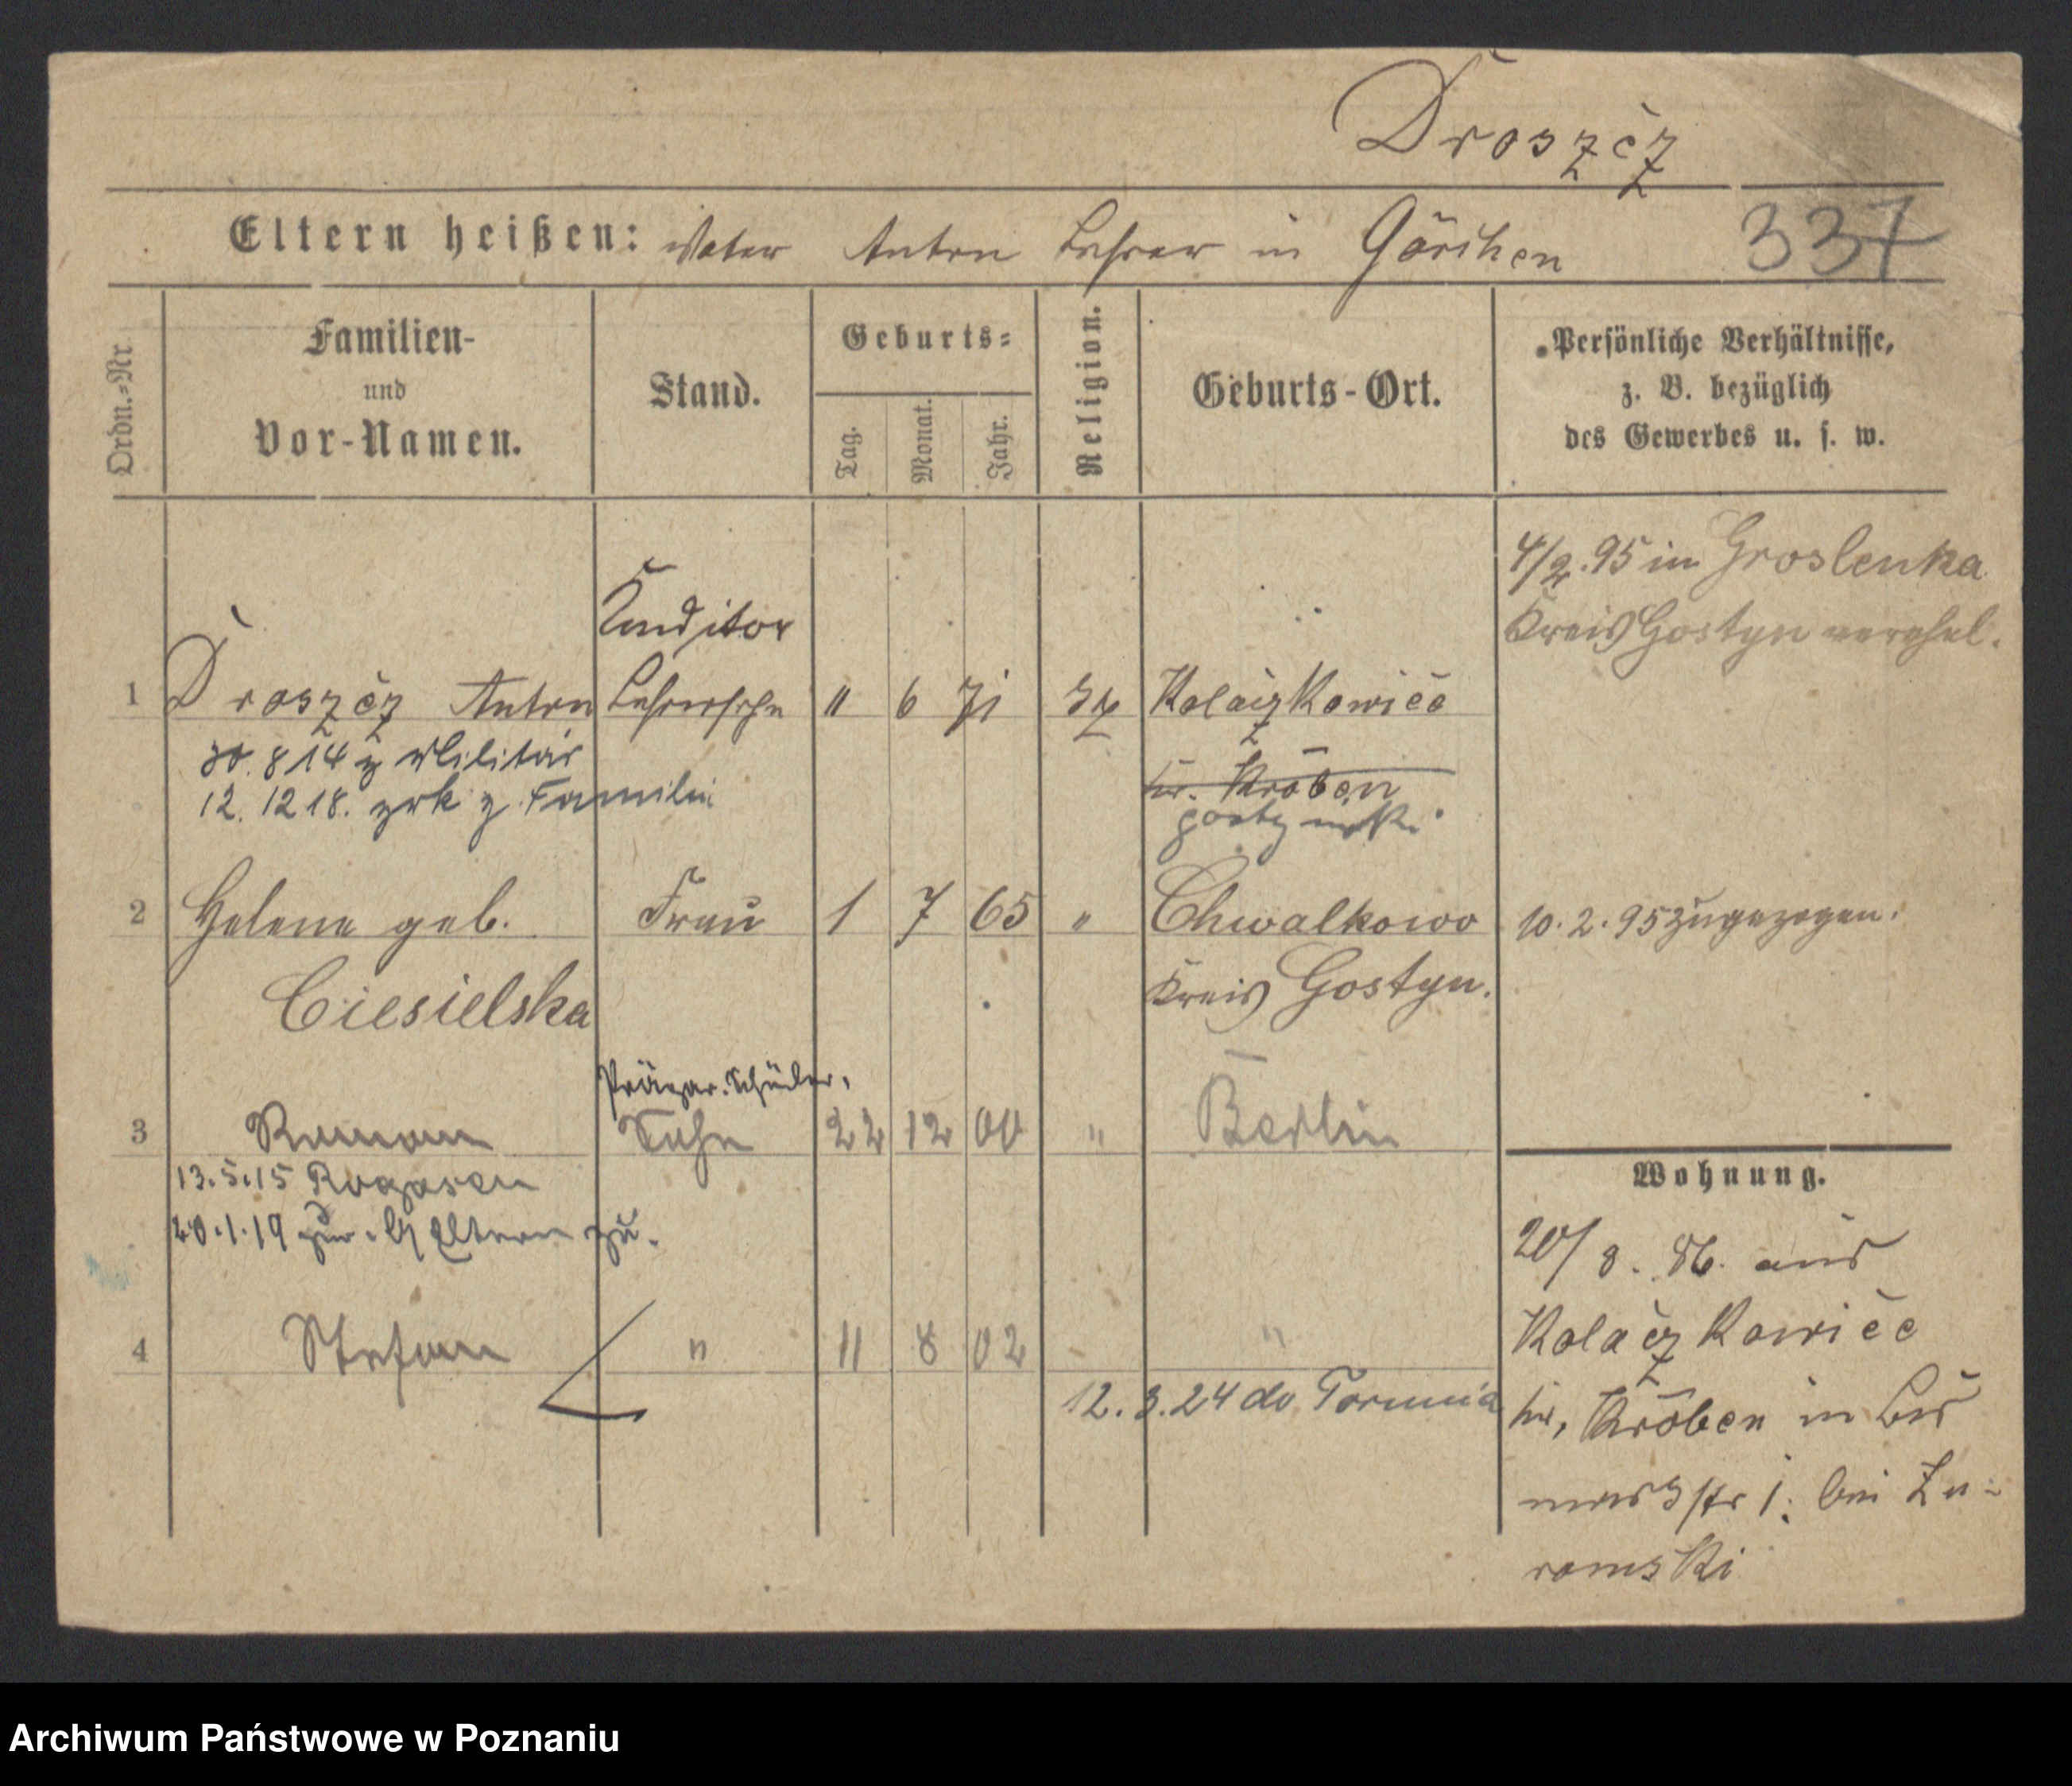 Droszcz
Eltern heißen: Vater Anton Lehrer in Görchen 337
Ordn.-Nr.
Familien-
und
Vor-Namen.
Stand.
Geburts-
Tag.
Monat.
Jahr.
Religion.
Geburts-Ort.
Persönliche Verhältnisse,
z. B. bezüglich
des Gewerbes u. s. w.
4/2. 95 in Groslenka
Kreis Gostyn verehel.
Konditor
1 Droszcz Anton Lehrersohn 11 6 71 Kolaczkowice
30. 8 14 z Militär
12. 12 18. zrk z. Familie
kr. Kröben
gostynski
2 Helene geb. Frau 1 7 65 " Chwalkowo 10. 2. 95 zugezogen.
Ciesielska
Kreis Gostyn.
Präpar. Schüler.
3 Roman Sohn 22 12 00 " Berlin
13.5.15 Rogasen
20.1.19 zur. Eltern zu.
Wohnung.
20/8. 86. aus
4 Stefan " 11 8 02 "
Kolaczkowice
12. 3. 24 do Torunia
kr, Kröben in
str 1. bei Zu-
romski
Archiwum Państwowe w Poznaniu